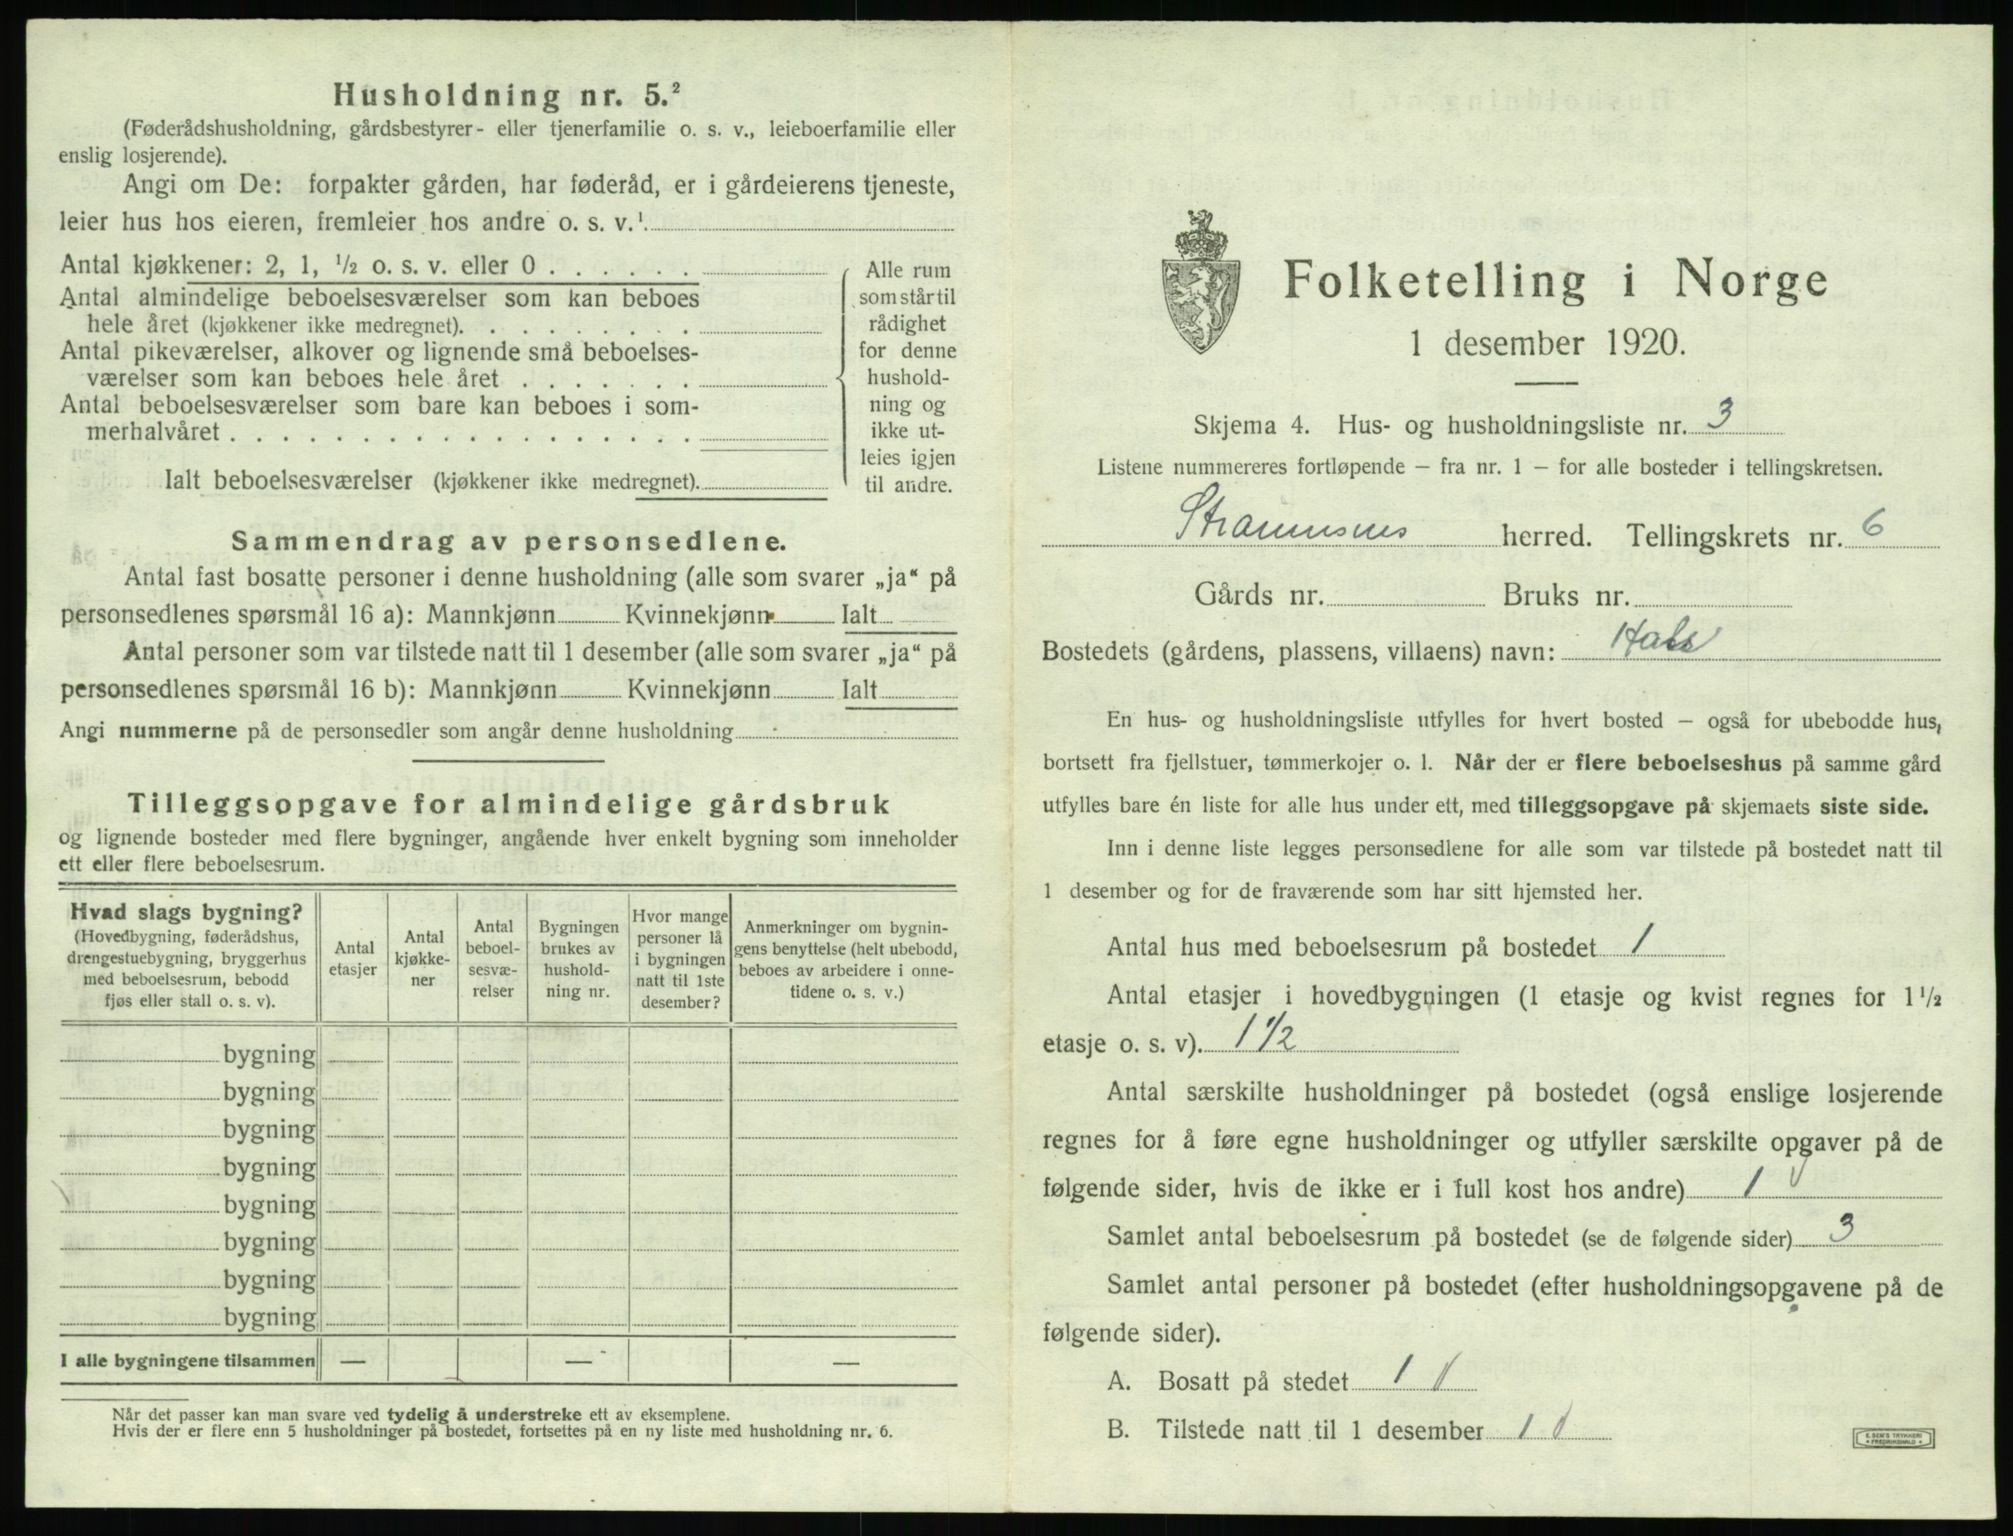 Husholdning nr. 5.²
(Føderådshusholdning, gårdsbestyrer- eller tjenerfamilie o. s. v., leieboerfamilie eller
enslig losjerende).
Angi om De: forpakter gården, har føderåd, er i gårdeierens tjeneste,
leier hus hos eieren, fremleier hos andre o. s. v.¹
Antal kjøkkener: 2, 1, ½ o. s. v. eller 0 . . . . . .
Antal almindelige beboelsesværelser som kan beboes
hele året (kjøkkener ikke medregnet). . . . . . . . .
Antal pikeværelser, alkover og lignende små beboelses-
værelser som kan beboes hele året . . . . . . .
Antal beboelsesværelser som bare kan beboes i som-
merhalvåret . . . . . . . . . . . . . . . . . .
Ialt beboelsesværelser (kjøkkener ikke medregnet).
Alle rum
som står til
rådighet
for denne
hushold-
ning og
ikke ut-
leies igjen
til andre.
Sammendrag av personsedlene.
Antal fast bosatte personer i denne husholdning (alle som svarer „ja“ på
personsedlenes spørsmål 16 a): Mannkjønn Kvinnekjønn Ialt
Antal personer som var tilstede natt til 1 desember (alle som svarer „ja“ på
personsedlenes spørsmål 16 b): Mannkjønn Kvinnekjønn Ialt
Angi nummerne på de personsedler som angår denne husholdning
Tilleggsopgave for almindelige gårdsbruk
og lignende bosteder med flere bygninger, angående hver enkelt bygning som inneholder
ett eller flere beboelsesrum.
Hvad slags bygning?
(Hovedbygning, føderådshus,
drengestuebygning, bryggerhus
med beboelsesrum, bebodd
fjøs eller stall o. s. v).
Antal
etasjer
Antal
kjøkke-
ner
Antal
beboel-
sesvæ-
relser
Bygningen
brukes av
hushold-
ning nr.
Hvor mange
personer lå
i bygningen
natt til 1ste
desember?
Anmerkninger om bygnin-
gens benyttelse (helt ubebodd,
beboes av arbeidere i onne-
tidene o. s. v.)
bygning
bygning
bygning
bygning
bygning
bygning
bygning
bygning
I alle bygningene tilsammen — — —
Når det passer kan man svare ved tydelig å understreke ett av eksemplene.
Hvis der er flere enn 5 husholdninger på bostedet, fortsettes på en ny liste med husholdning nr. 6.
Folketelling i Norge
1 desember 1920.
Skjema 4. Hus- og husholdningsliste nr. 3
Listene nummereres fortløpende — fra nr. 1 — for alle bosteder i tellingskretsen.
Straumsnes herred. Tellingskrets nr. 6
Gårds nr. Bruks nr.
Bostedets (gårdens, plassens, villaens) navn: Hals
En hus- og husholdningsliste utfylles for hvert bosted — også for ubebodde hus,
bortsett fra fjellstuer, tømmerkojer o. l. Når der er flere beboelseshus på samme gård
utfylles bare én liste for alle hus under ett, med tilleggsopgave på skjemaets siste side.
Inn i denne liste legges personsedlene for alle som var tilstede på bostedet natt til
1 desember og for de fraværende som har sitt hjemsted her.
Antal hus med beboelsesrum på bostedet 1
Antal etasjer i hovedbygningen (1 etasje og kvist regnes for 1½
etasje o. s. v). 1½
Antal særskilte husholdninger på bostedet (også enslige losjerende
regnes for å føre egne husholdninger og utfyller særskilte opgaver på de
følgende sider, hvis de ikke er i full kost hos andre) 1
Samlet antal beboelsesrum på bostedet (se de følgende sider) 3
Samlet antal personer på bostedet (efter husholdningsopgavene på de
følgende sider).
A. Bosatt på stedet 1
B. Tilstede natt til 1 desember 1
E. SEM'S TRYKKERI
FREDRIKSHALD